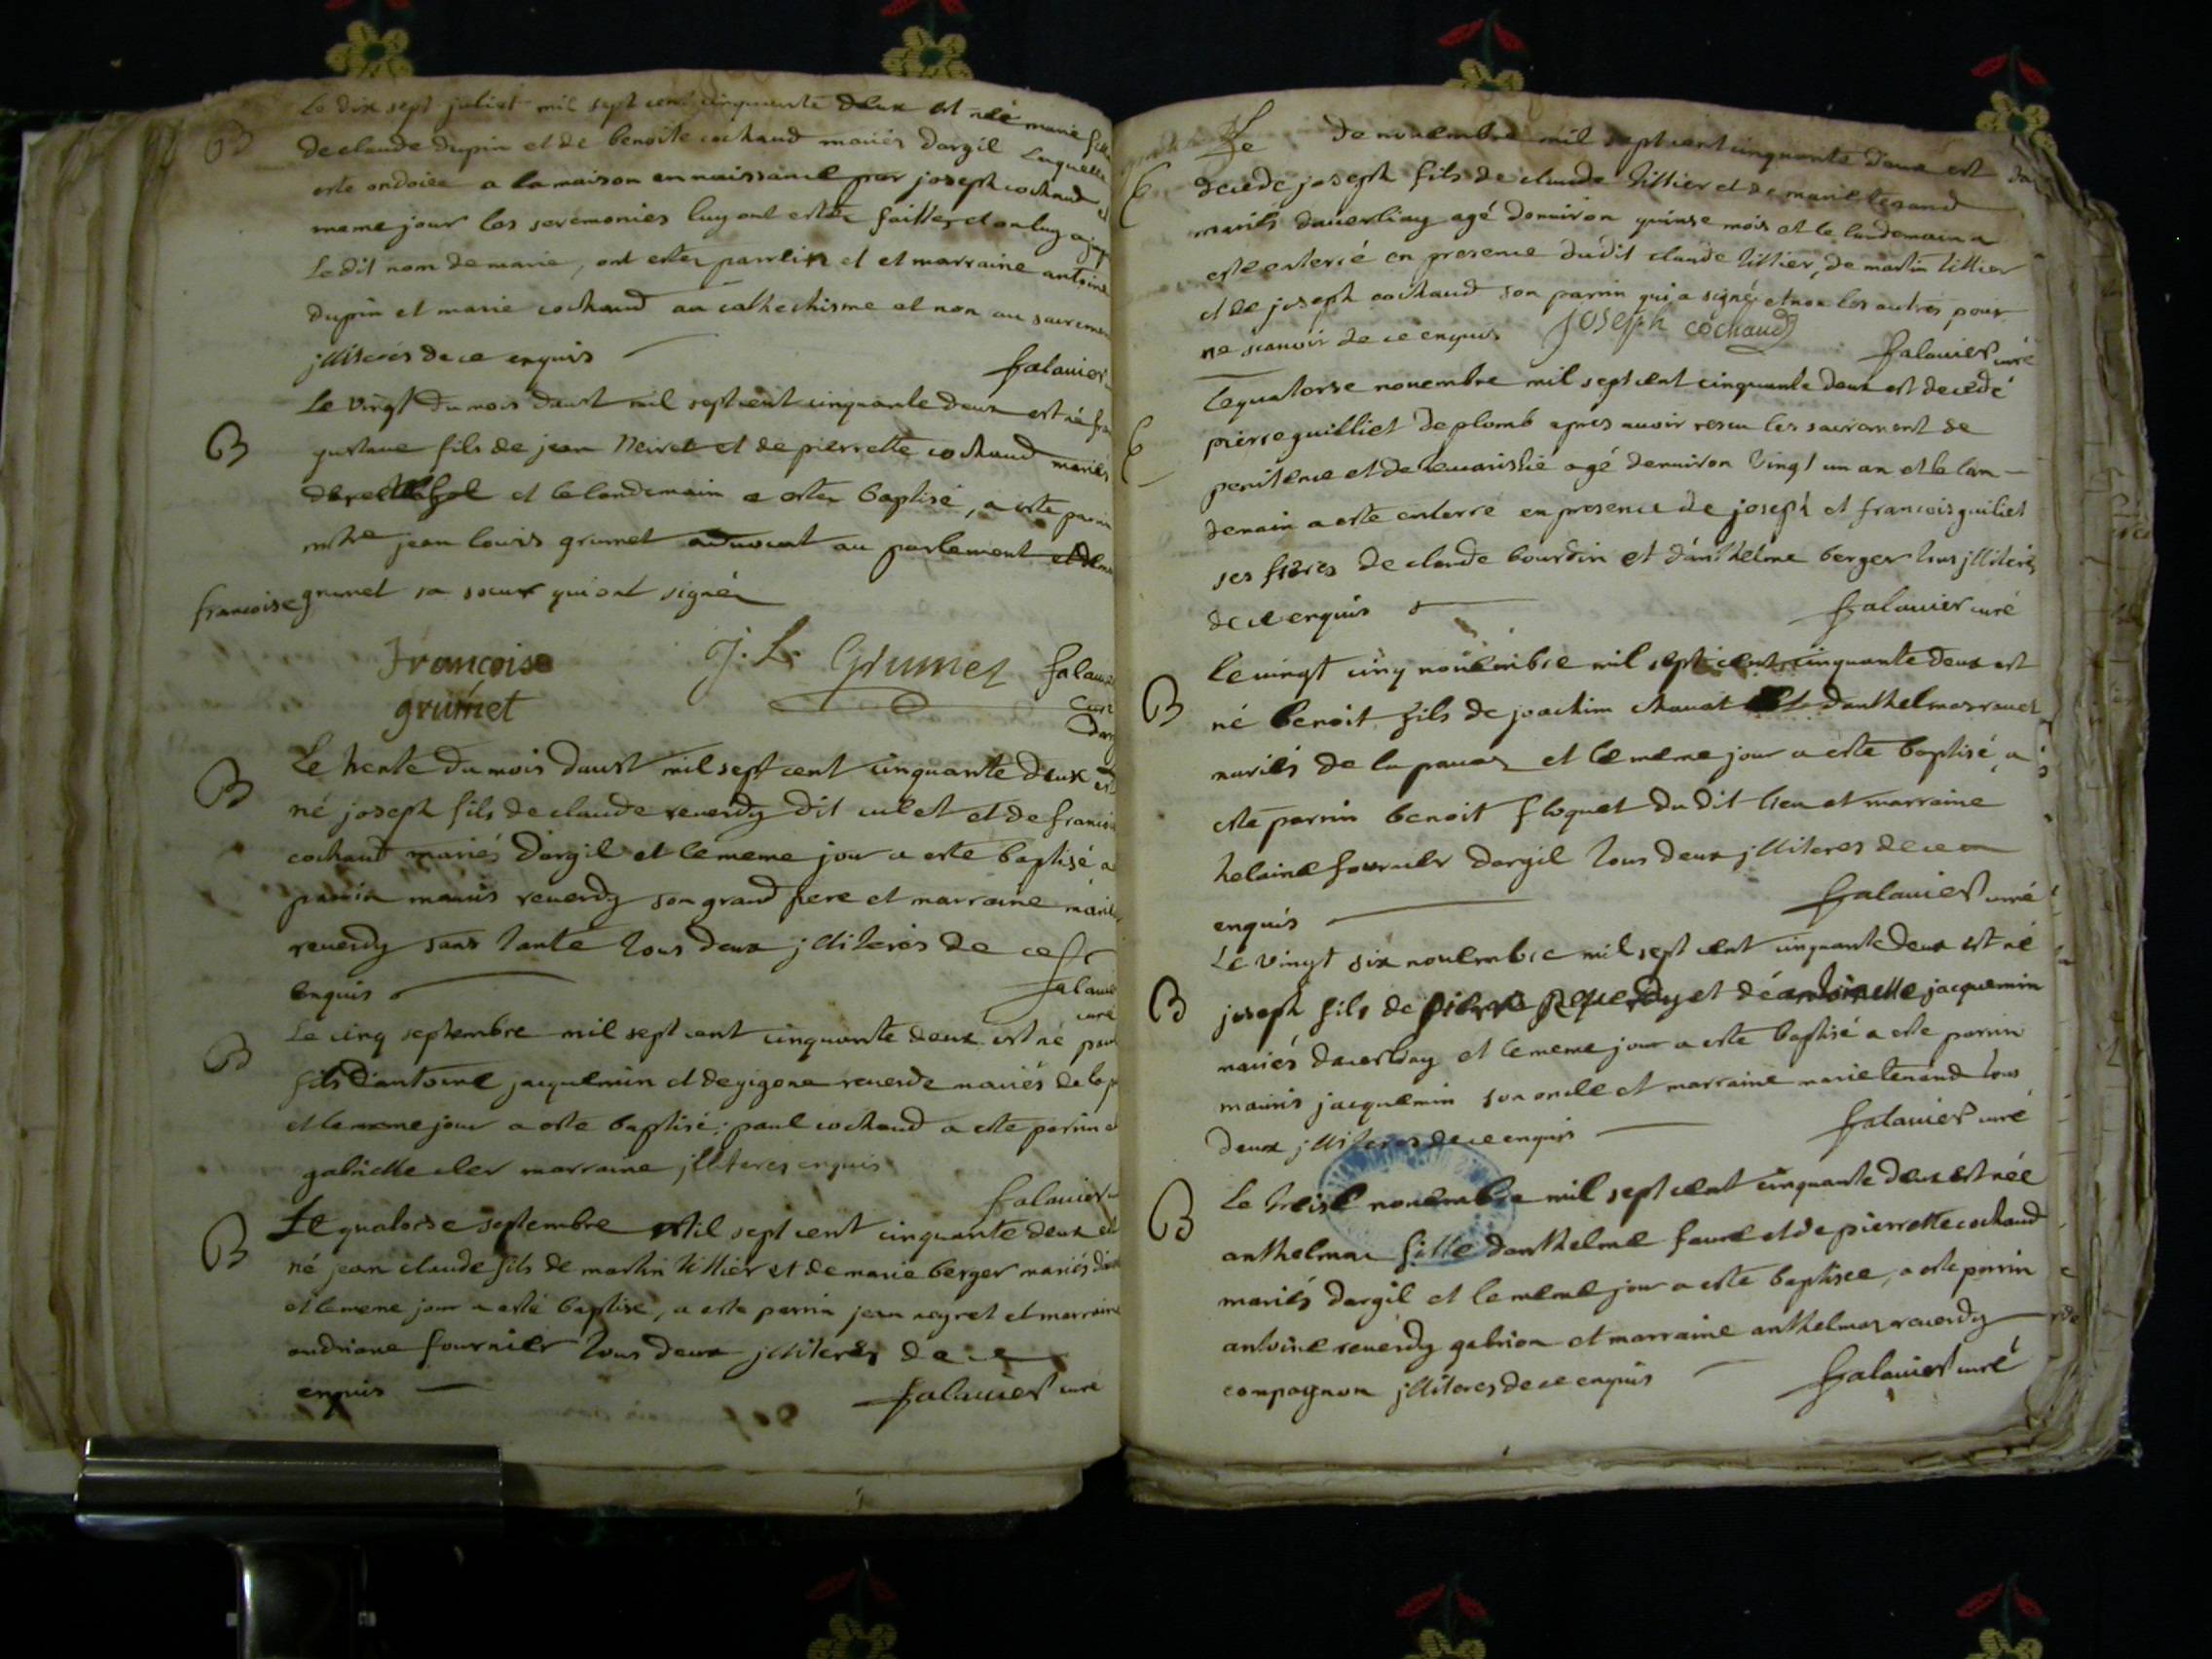 B
Le dix sept juliet mil sept cent cinquante deux est née marie fille
de claude dupin et de benoite cochaud mariés dargil laquelle
este ondoiee a la maison en naissance par joseph cochaud et
meme jour les seremonies luy ont estez faittes et on luy a
le dit nom de marie, ont estez parrein et et marraine antoine
dupin et marie cochaud au cathechisme et non au sacrement
jlliteres de ce enquis
falavier
B
Le vingt du mois daust mil sept cent cinquante deux est né
gustave fils de jean Neiret et de pierrette cochaud mariés
et le landemain a estez baptisé, a este parrin
jean louis grumet advocat au parlement et
francoise grumet sa soeur qui ont signéz
Francoise
grumet
J. L. Grumet
falavier
curé
B
Le trente du mois daust mil sept cent cinquante deux est
né joseph fils de claude reverdy dit culet et de francoise
cochaud mariés dargil et le meme jour a este baptisé a
parrin mauris reverdy son grand pere et marraine marie
reverdy sans tante tous deux jlliterés de ce
enquis
falavier
curé
B
Le cinq septembre mil sept cent cinquante deux est né paul
fils dantoine jacquemin et de gigone reverde mariés de
et le meme jour a este baptisé; paul cochaud a este parrin et
gabrielle cler marraine jlliteres enquis
falavier
B
Le quatorse septembre mil sept cent cinquante deux est
né jean claude fils de martin tillier et de marie berger mariés
et le meme jour a esté baptise, a este parrin jean neyret et marraine
andriane fournier tous deux jlliterés de ce
enquis
falavier curé
Le de novembre mil sept cent cinquante deux est
decedé joseph fils de claude tillier et de marie tenand
mariés daverliay agé denviron quinse mois et le landemain a
este enterré en presence dudit claude tillier, de martin tillier
et de joseph cochaud son parrin qui a signé et non les autres pour
ne scavoir de ce enquis Joseph cochaud
falavier curé
Le quatorse novembre mil sept cent cinquante deux est decedé
pierre guilliet de plomb apres avoir resu les sacrement de
penitence et de leucaristie agé denviron vingt un an et le lan-
demain a este enterré en presence de joseph et francois guiliet
ses freres de claude bourdin et danthelme berger tous jlliterés
de ce enquis
falavier curé
B
Le vingt cinq novembre mil sept cent cinquante deux est
né benoit fils de joachim chavat et danthelmaz
mariés de la pavaz et le meme jour a este baptisé, a
este parrin benoit floquet du dit lieu et marraine
helaine fournier dargil tous deux jlliteres de ce
enquis
falavier curé
B
Le vingt six novembre mil sept cent cinquante deux est né
joseph fils de pierre reverdy et de antoinette jacquemin
mariés daverliay et le meme jour a este baptisé a este parrin
mauris jacquemin son oncle et marraine marie tenand tous
deux jlliteres de ce enquis
falavier curé
B
Le treise novembre mil sept cent cinquante deux est née
anthelmaz fille danthelme favre et de pierrette cochaud
mariés dargil et le meme jour a este baptisee, a este parrin
antoine reverdy gabrion et marraine anthelmaz reverdy
compagnon jlliteres de ce enquis
falavier curé